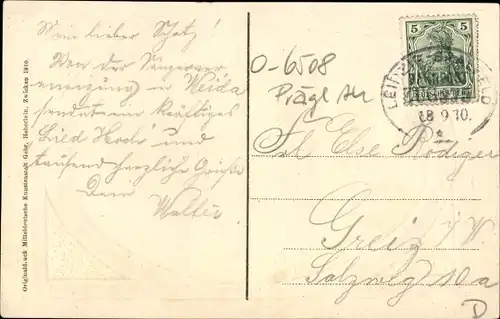 Mein lieber Schatz!
Von der Sängerver
einigung in Weida
sendet einen kräftiges
"Lied Hoch" und
tausend herzliche Grüße
Dein
Walter
Originaldruck Mitteldeutsche Kunstanstalt Gebr. Haberlein, Zwickau 1910.
O-6508
Prägl AK
5 5
18.9.10.
Frl Else Rödiger
Greiz i/V
Salzweg 10a
D